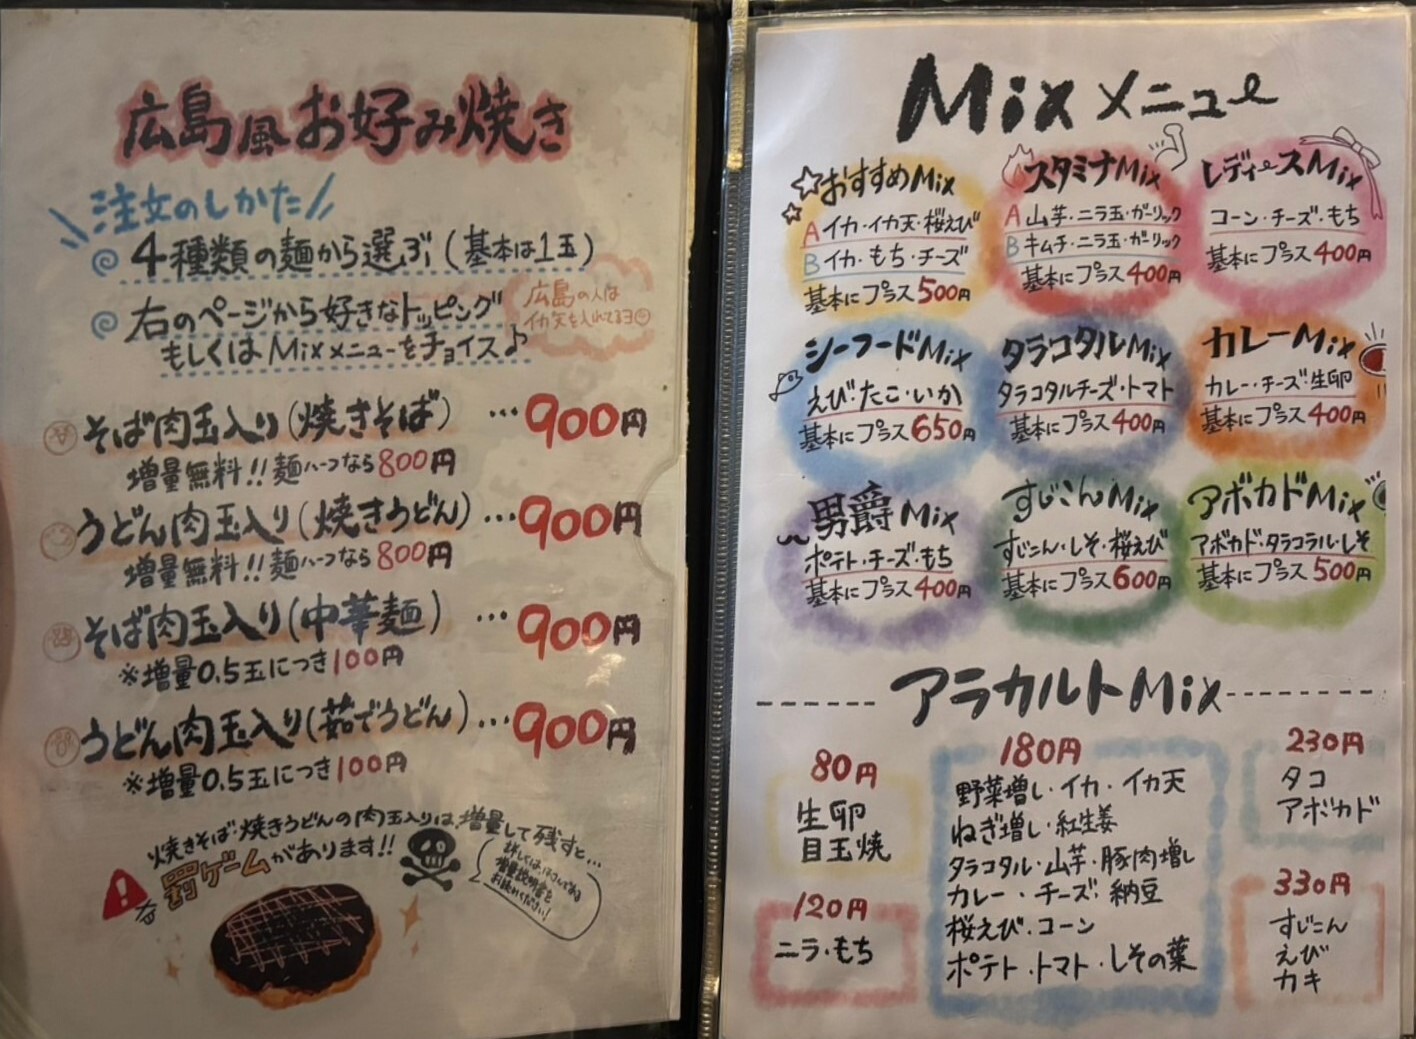 広島風お好み焼き
注文のしかた
4種類の麺から選ぶ(基本は1玉)
右のページから好きなトッピング
もしくはMixメニューをチョイス♪
広島の人は
イカ天を入れてるヨ
そば肉玉入り(焼きそば) …900円
増量無料!!麺ハーフなら800円
うどん肉玉入り(焼きうどん)…900円
増量無料!!麺ハーフなら800円
そば肉玉入り(中華麺) …900円
※増量0.5玉につき100円
うどん肉玉入り(茹でうどん)…900円
※増量0.5玉につき100円
焼きそば・焼きうどんの肉玉入りは、増量して残すと…
な罰ゲームがあります!!
増量説明書を
お読みください!
Mixメニュー
おすすめMix
A イカ・イカ天・桜えび
B イカ・もち・チーズ
基本にプラス500円
スタミナMix
A 山芋・ニラ玉・ガーリック
B キムチ・ニラ玉・ガーリック
基本にプラス400円
レディースMix
コーン・チーズ・もち
基本にプラス400円
シーフードMix
えび・たこ・いか
基本にプラス650円
タラコタルMix
タラコタルチーズ・トマト
基本にプラス400円
カレーMix
カレー・チーズ・生卵
基本にプラス400円
男爵Mix
ポテト・チーズ・もち
基本にプラス400円
すじこんMix
すじこん・しそ・桜えび
基本にプラス600円
アボカドMix
アボカド・タラコラル・しそ
基本にプラス500円
アラカルトMix
80円
生卵
目玉焼
120円
ニラ・もち
180円
野菜増し・イカ・イカ天
ねぎ増し・紅生姜
タラコタル・山芋・豚肉増し
カレー・チーズ・納豆
桜えび・コーン
ポテト・トマト・しその葉
230円
タコ
アボカド
330円
すじこん
えび
カキ